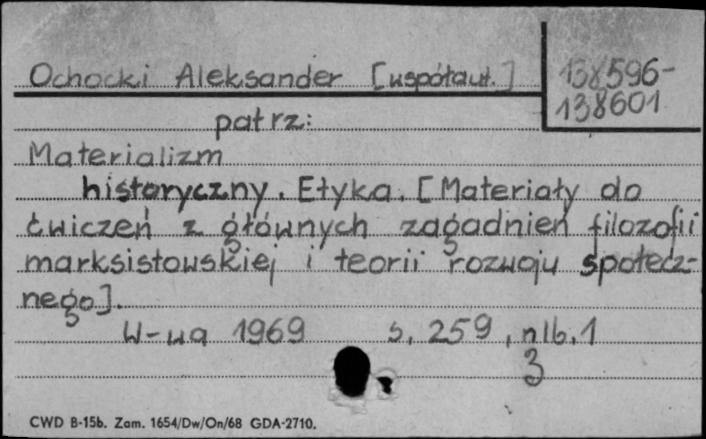 Ochocki Aleksander [współaut.]
138596-
138601
patrz:
Materializm
historyczny. Etyka. [Materiały do
ćwiczeń z głównych zagadnień filozofii
marksistowskiej i teorii rozwoju społecz-
nego].
W-wa 1969 s. 259, nlb. 1
3
CWD B-15b. Zam. 1654/Dw/On/68 GDA-2710.